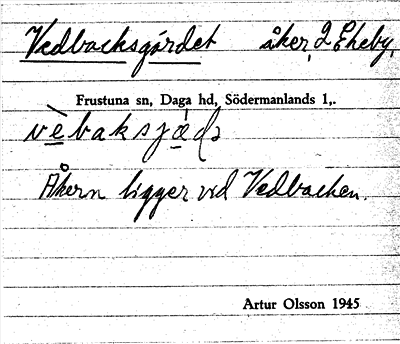 Vedbacksgärdet åker, 2 Eheby,
Frustuna sn, Daga hd, Södermanlands l,.
Åkern ligger vid Vedbacken.
Artur Olsson 1945